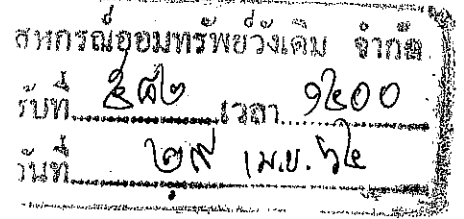 สหกรณ์ออมทรัพย์วังเดิม จำกัด
รับที่ ๕๘๒ เวลา ๑๕๐๐
วันที่ ๒๙ เม.ย. ๖๕